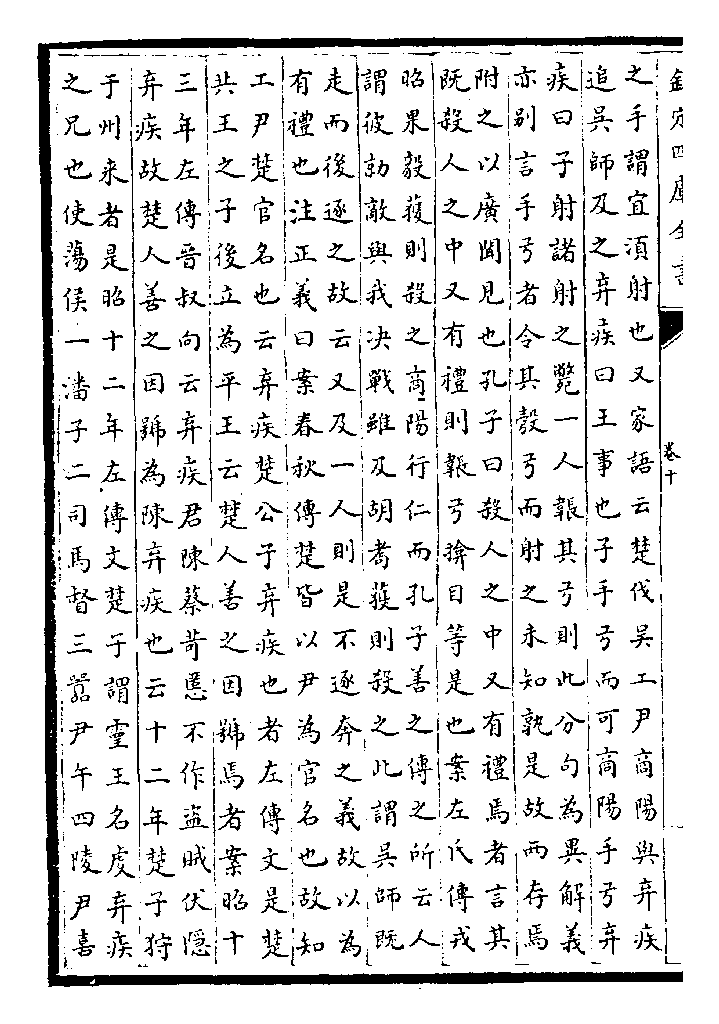 欽定四庫全書
卷十
之手謂宜須射也又家語云楚伐吳工尹商陽與弃疾
追吳師及之弃疾曰王事也子手弓而可商陽手弓弃
疾曰子射諸射之斃一人韔其弓則此分句為異解義
亦别言手弓者令其彀弓而射之未知孰是故两存焉
附之以廣聞見也孔子曰殺人之中又有禮焉者言其
既殺人之中又有禮則韔弓揜目等是也案左氏傳戎
昭果毅獲則殺之商陽行仁而孔子善之傳之所云人
謂彼勍敵與我决戰雖及胡耇獲則殺之此謂吳師既
走而後逐之故云又及一人則是不逐奔之義故以為
有禮也注正義曰案春秋傳楚皆以尹為官名也故知
工尹楚官名也云弃疾楚公子弃疾也者左傳文是楚
共王之子後立為平王云楚人善之因號焉者案昭十
三年左傳晉叔向云弃疾君陳蔡苛慝不作盗賊伏隱
弃疾故楚人善之因號為陳弃疾也云十二年楚子狩
于州来者是昭十二年左傳文楚子謂靈王名虔弃疾
之兄也使蕩侯一潘子二司馬督三嚻尹午四陵尹喜